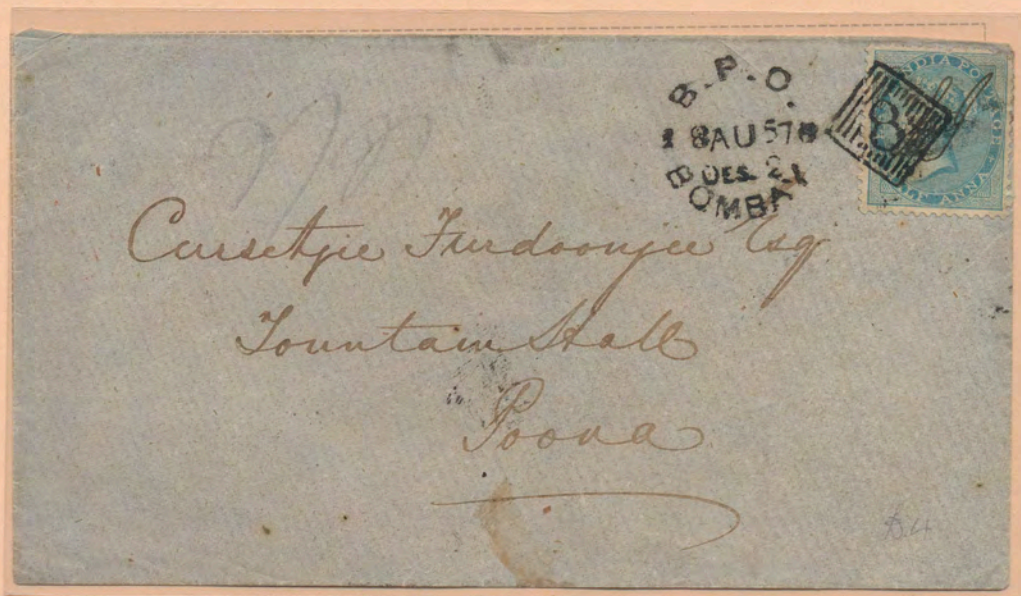 B.P.O.
8 AU 57
DES. 2
BOMBAY
INDIA POSTAGE
ANNA
B
Cursetjee Furdoonjee Esq
Fountain Hall
Poona